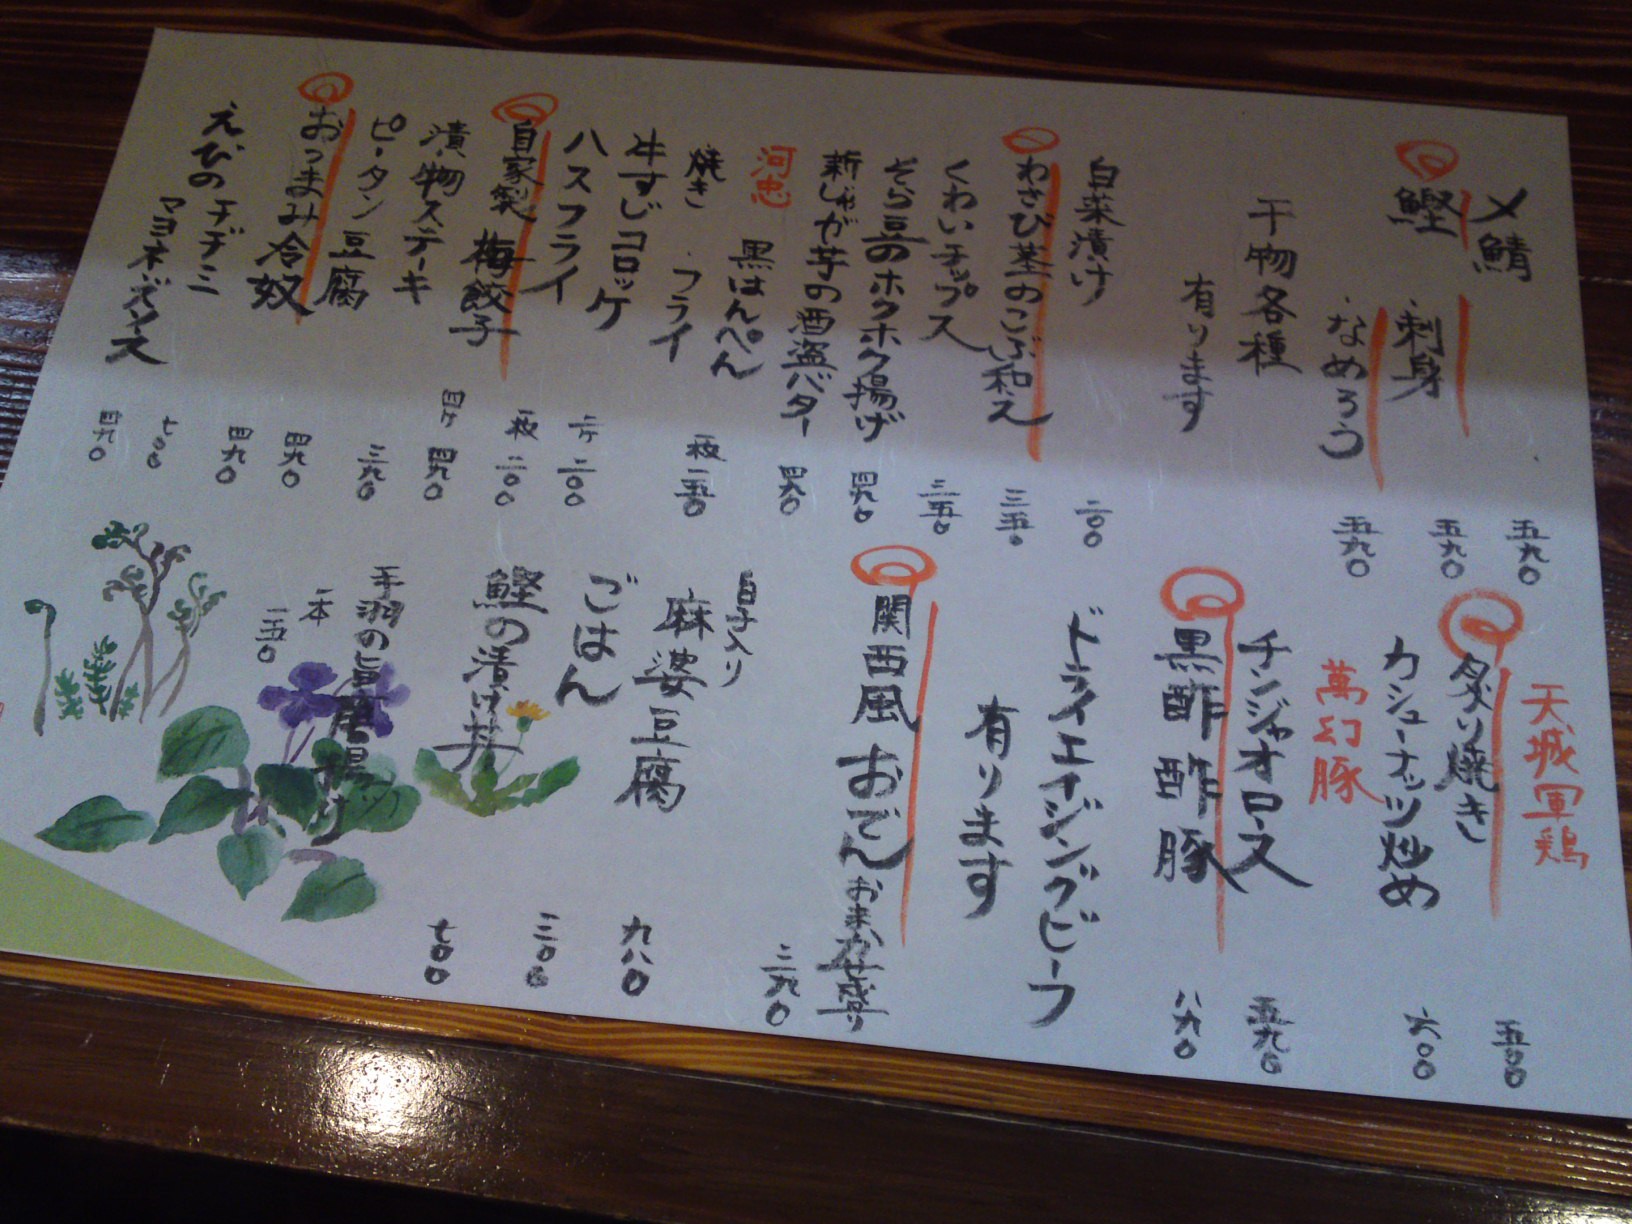 〆鯖 五九〇
鰹 刺身 五九〇
なめろう 五九〇
干物各種
有ります
白菜漬け 二〇〇
わさび茎のこぶ和え 三五〇
くわいチップス 三五〇
そら豆のホクホク揚げ 四九〇
新じゃが芋の酒盗バター 四九〇
河忠
黒はんぺん
焼き・フライ 一枚 一五〇
牛すじコロッケ 一ケ 二〇〇
ハスフライ 一枚 二〇〇
自家製 梅餃子 四ケ 四九〇
漬物ステーキ 三九〇
ピータン豆腐 四九〇
おつまみ冷奴 四九〇
えびのチヂミ 七〇〇
マヨネーズソース 四九〇
天城軍鶏
炙り焼き 五〇〇
カシューナッツ炒め 六〇〇
萬幻豚
チンジャオロース 五九〇
黒酢酢豚 八九〇
ドライエイジングビーフ
有ります
関西風おでん おまかせ盛り 三九〇
白子入り
麻婆豆腐 九八〇
ごはん 三〇〇
鰹の漬け丼 七〇〇
手羽の旨唐揚げ
一本 一五〇